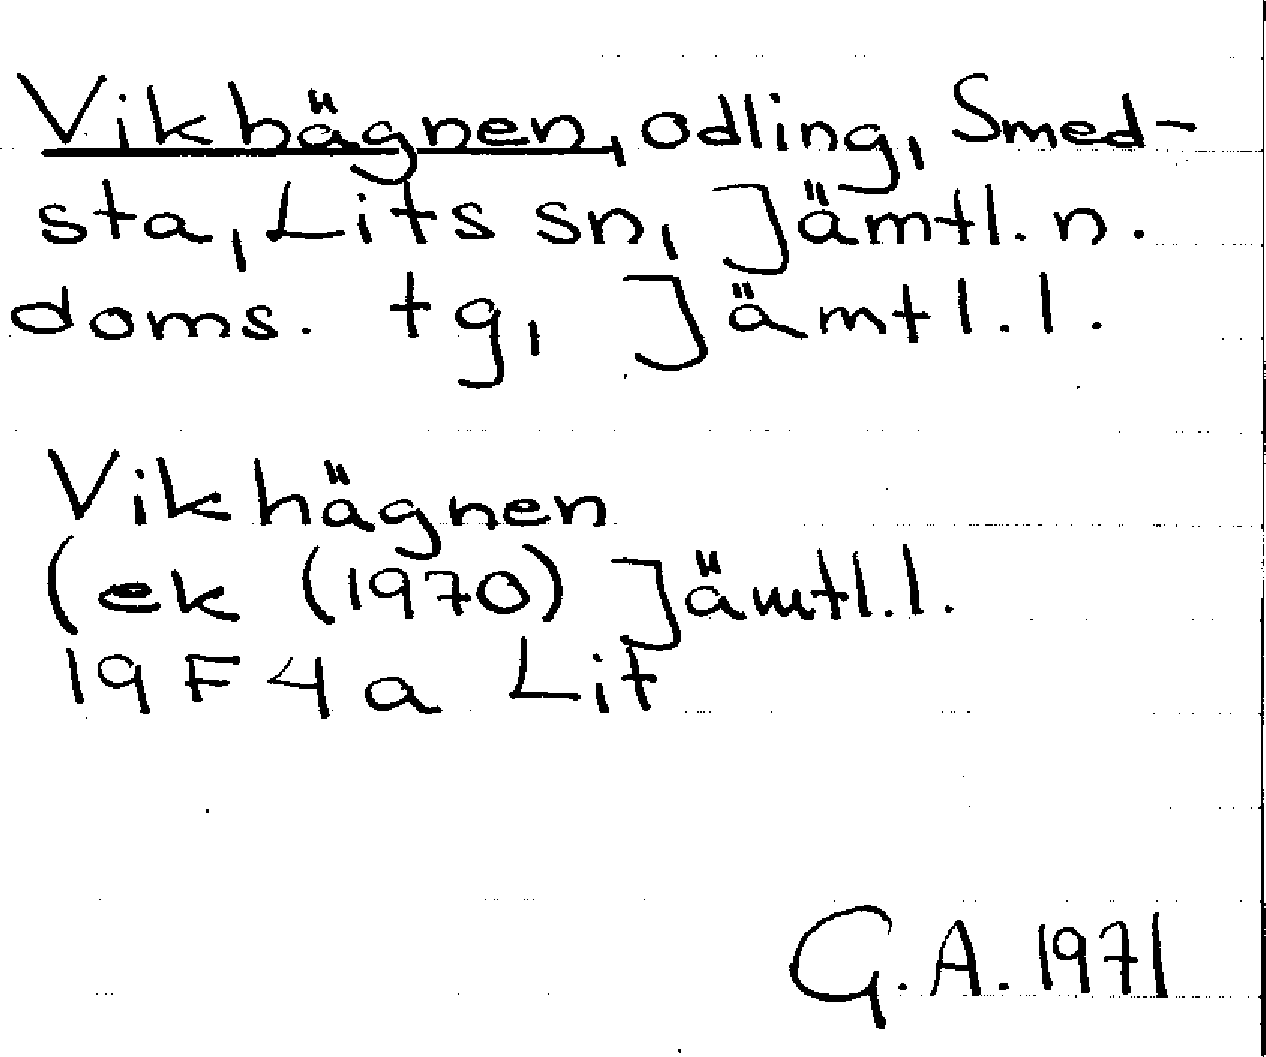 Vikhägnen, odling, Smed-
sta, Lits sn, Jämtl. n.
doms. tg, Jämtl. l.
Vikhägnen
(ek (1970) Jämtl. l.
19 F 4 a Lit
G. A. 1971